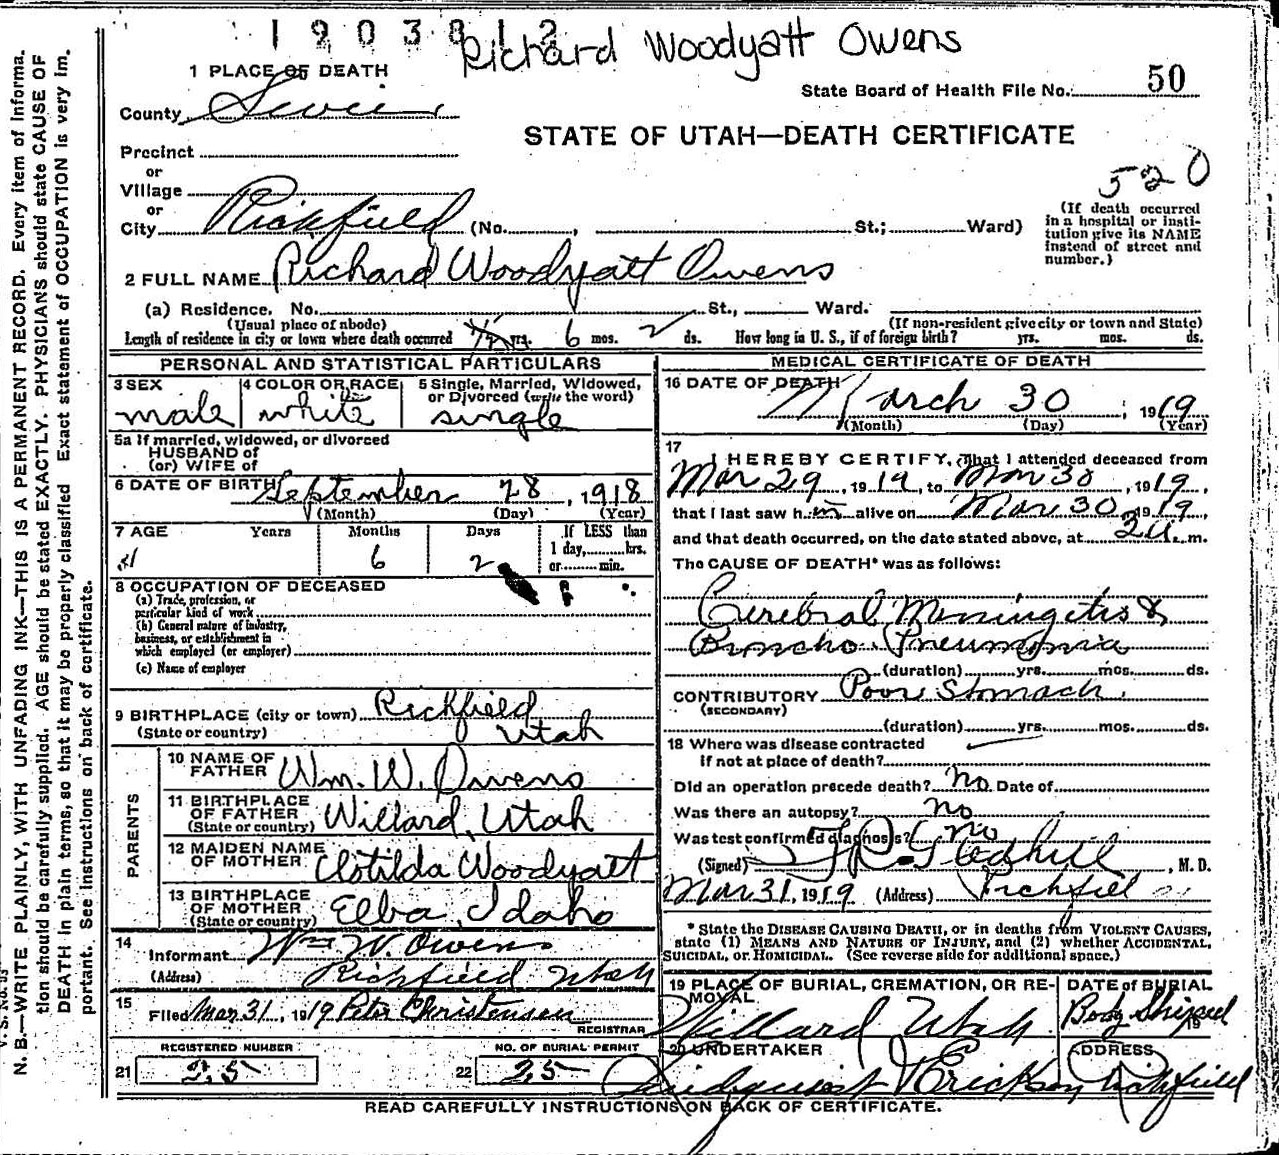 1903812
Richard Woodyatt Owens
1 PLACE OF DEATH
State Board of Health File No. 50
County Sevier
STATE OF UTAH—DEATH CERTIFICATE
Precinct
or
Village
520
or
City Richfield (No. , St.; Ward)
(If death occurred in a hospital or insti-
tution give its NAME
instead of street and
number.)
2 FULL NAME Richard Woodyatt Owens
(a) Residence. No. St., Ward.
(Usual place of abode) (If non-resident give city or town and State)
Length of residence in city or town where death occurred yrs. 6 mos. 2 ds. How long in U. S., if of foreign birth? yrs. mos. ds.
PERSONAL AND STATISTICAL PARTICULARS
3 SEX male
4 COLOR OR RACE white
5 Single, Married, Widowed,
or Divorced (write the word)
single
5a If married, widowed, or divorced
HUSBAND of
(or) WIFE of
6 DATE OF BIRTH September 28, 1918
(Month) (Day) (Year)
7 AGE Years Months Days If LESS than
1 day, hrs.
or min.
6 2
8 OCCUPATION OF DECEASED
(a) Trade, profession, or
particular kind of work
(b) General nature of industry,
business, or establishment in
which employed (or employer)
(c) Name of employer
9 BIRTHPLACE (city or town) Richfield
(State or country) Utah
PARENTS
10 NAME OF
FATHER Wm. W. Owens
11 BIRTHPLACE
OF FATHER
(State or country) Willard, Utah
12 MAIDEN NAME
OF MOTHER Clotilda Woodyatt
13 BIRTHPLACE
OF MOTHER
(State or country) Elba, Idaho
14
Informant Wm W. Owens
(Address) Richfield Utah
15
Filed Mar 31, 1919 Peter Christensen
REGISTRAR
REGISTERED NUMBER
21 25
NO. OF BURIAL PERMIT
22 25
MEDICAL CERTIFICATE OF DEATH
16 DATE OF DEATH March 30, 1919
(Month) (Day) (Year)
17
I HEREBY CERTIFY, That I attended deceased from
Mar 29, 1919, to Mar 30, 1919,
that I last saw him alive on Mar 30, 1919,
and that death occurred, on the date stated above, at m.
The CAUSE OF DEATH* was as follows:
Cerebral Meningitis &
Broncho. Pneumonia
(duration) yrs. mos. ds.
CONTRIBUTORY Poor Stomach.
(SECONDARY)
(duration) yrs. mos. ds.
18 Where was disease contracted
if not at place of death?
Did an operation precede death? no Date of
Was there an autopsy? no
Was test confirmed diagnosis? no
(Signed) Gledhill, M. D.
Mar 31, 1919 (Address) Richfield
* State the DISEASE CAUSING DEATH, or in deaths from VIOLENT CAUSES,
state (1) MEANS AND NATURE OF INJURY, and (2) whether ACCIDENTAL,
SUICIDAL, or HOMICIDAL. (See reverse side for additional space.)
19 PLACE OF BURIAL, CREMATION, OR RE-
MOVAL
Willard Utah
DATE of BURIAL
Body Shipped
19
20 UNDERTAKER
Erickson
ADDRESS
Richfield
READ CAREFULLY INSTRUCTIONS ON BACK OF CERTIFICATE.
N. B.—WRITE PLAINLY, WITH UNFADING INK—THIS IS A PERMANENT RECORD. Every item of informa-
tion should be carefully supplied. AGE should be stated EXACTLY. PHYSICIANS should state CAUSE OF
DEATH in plain terms, so that it may be properly classified. Exact statement of OCCUPATION is very im-
portant. See instructions on back of certificate.